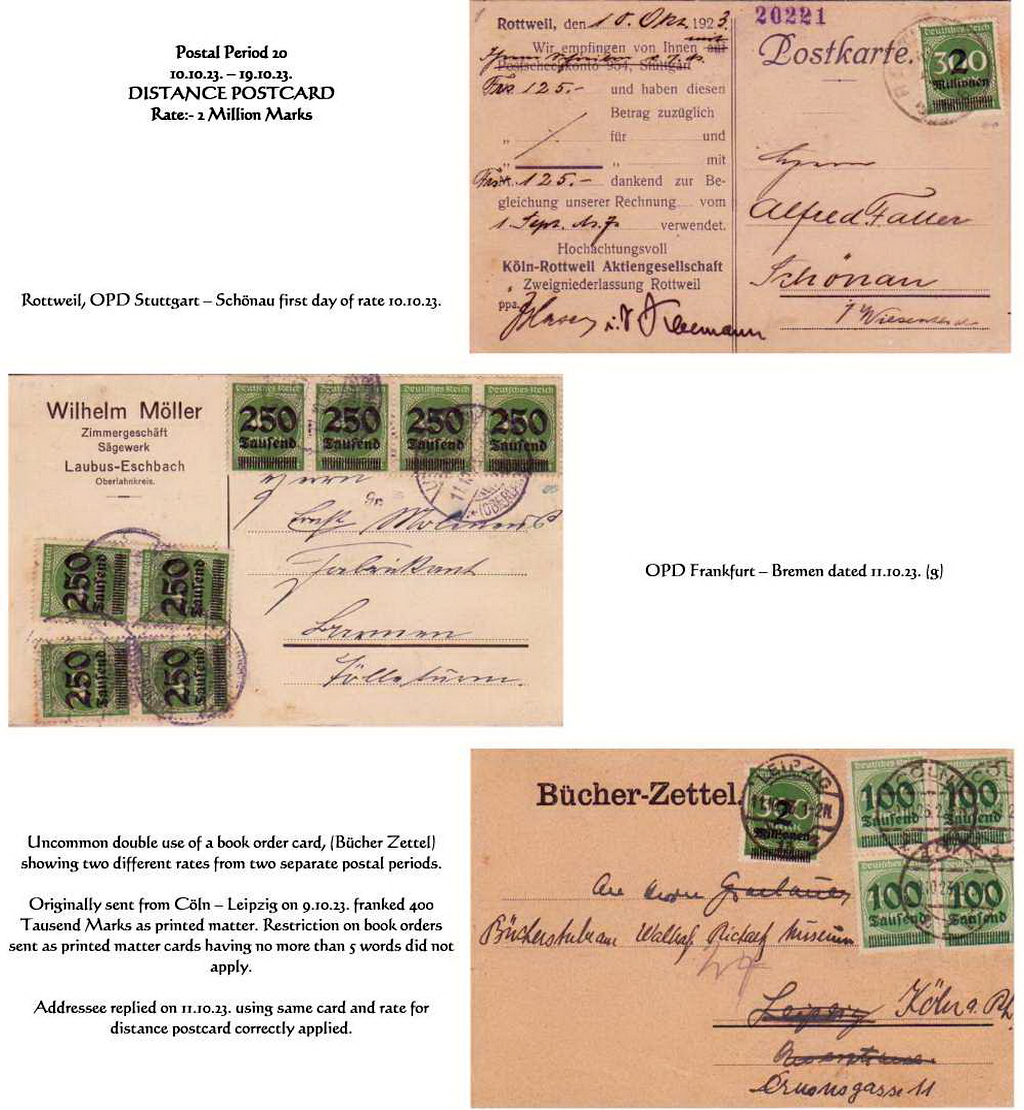 Postal Period 20
10.10.23. – 19.10.23.
DISTANCE POSTCARD
Rate:- 2 Million Marks
Rottweil, OPD Stuttgart – Schönau first day of rate 10.10.23.
Rottweil, den 10. Okt. 1923.
20221
Postkarte.
Wir empfingen von Ihnen auf
Postscheckkonto 904, Stuttgart
Frs. 125.- und haben diesen
Betrag zuzüglich
„ für und
„ „ mit
Frs. 125.- dankend zur Be-
gleichung unserer Rechnung vom
1. Sept. verwendet.
Hochachtungsvoll
Köln-Rottweil Aktiengesellschaft
Zweigniederlassung Rottweil
ppa.
Deutsches Reich
300
2
Millionen
Herrn
Alfred Faller
Schönau
i/ Wiesental
Wilhelm Möller
Zimmergeschäft
Sägewerk
Laubus-Eschbach
Oberlahnkreis.
Deutsches Reich Deutsches Reich Deutsches Reich Deutsches Reich
250 250 250 250
Tausend Tausend Tausend Tausend
Herrn
Fabrikant
Barmen
250 Tausend 250 Tausend
250 Tausend 250 Tausend
OPD Frankfurt – Bremen dated 11.10.23. (g)
Uncommon double use of a book order card, (Bücher Zettel)
showing two different rates from two separate postal periods.
Originally sent from Cöln – Leipzig on 9.10.23. franked 400
Tausend Marks as printed matter. Restriction on book orders
sent as printed matter cards having no more than 5 words did not
apply.
Addressee replied on 11.10.23. using same card and rate for
distance postcard correctly applied.
Bücher-Zettel.
LEIPZIG
2
Millionen
CÖLN
100 100
Tausend Tausend
100 100
Tausend Tausend
An
Bücherstube am Wallraf Richartz Museum
Leipzig Köln a. Rh.